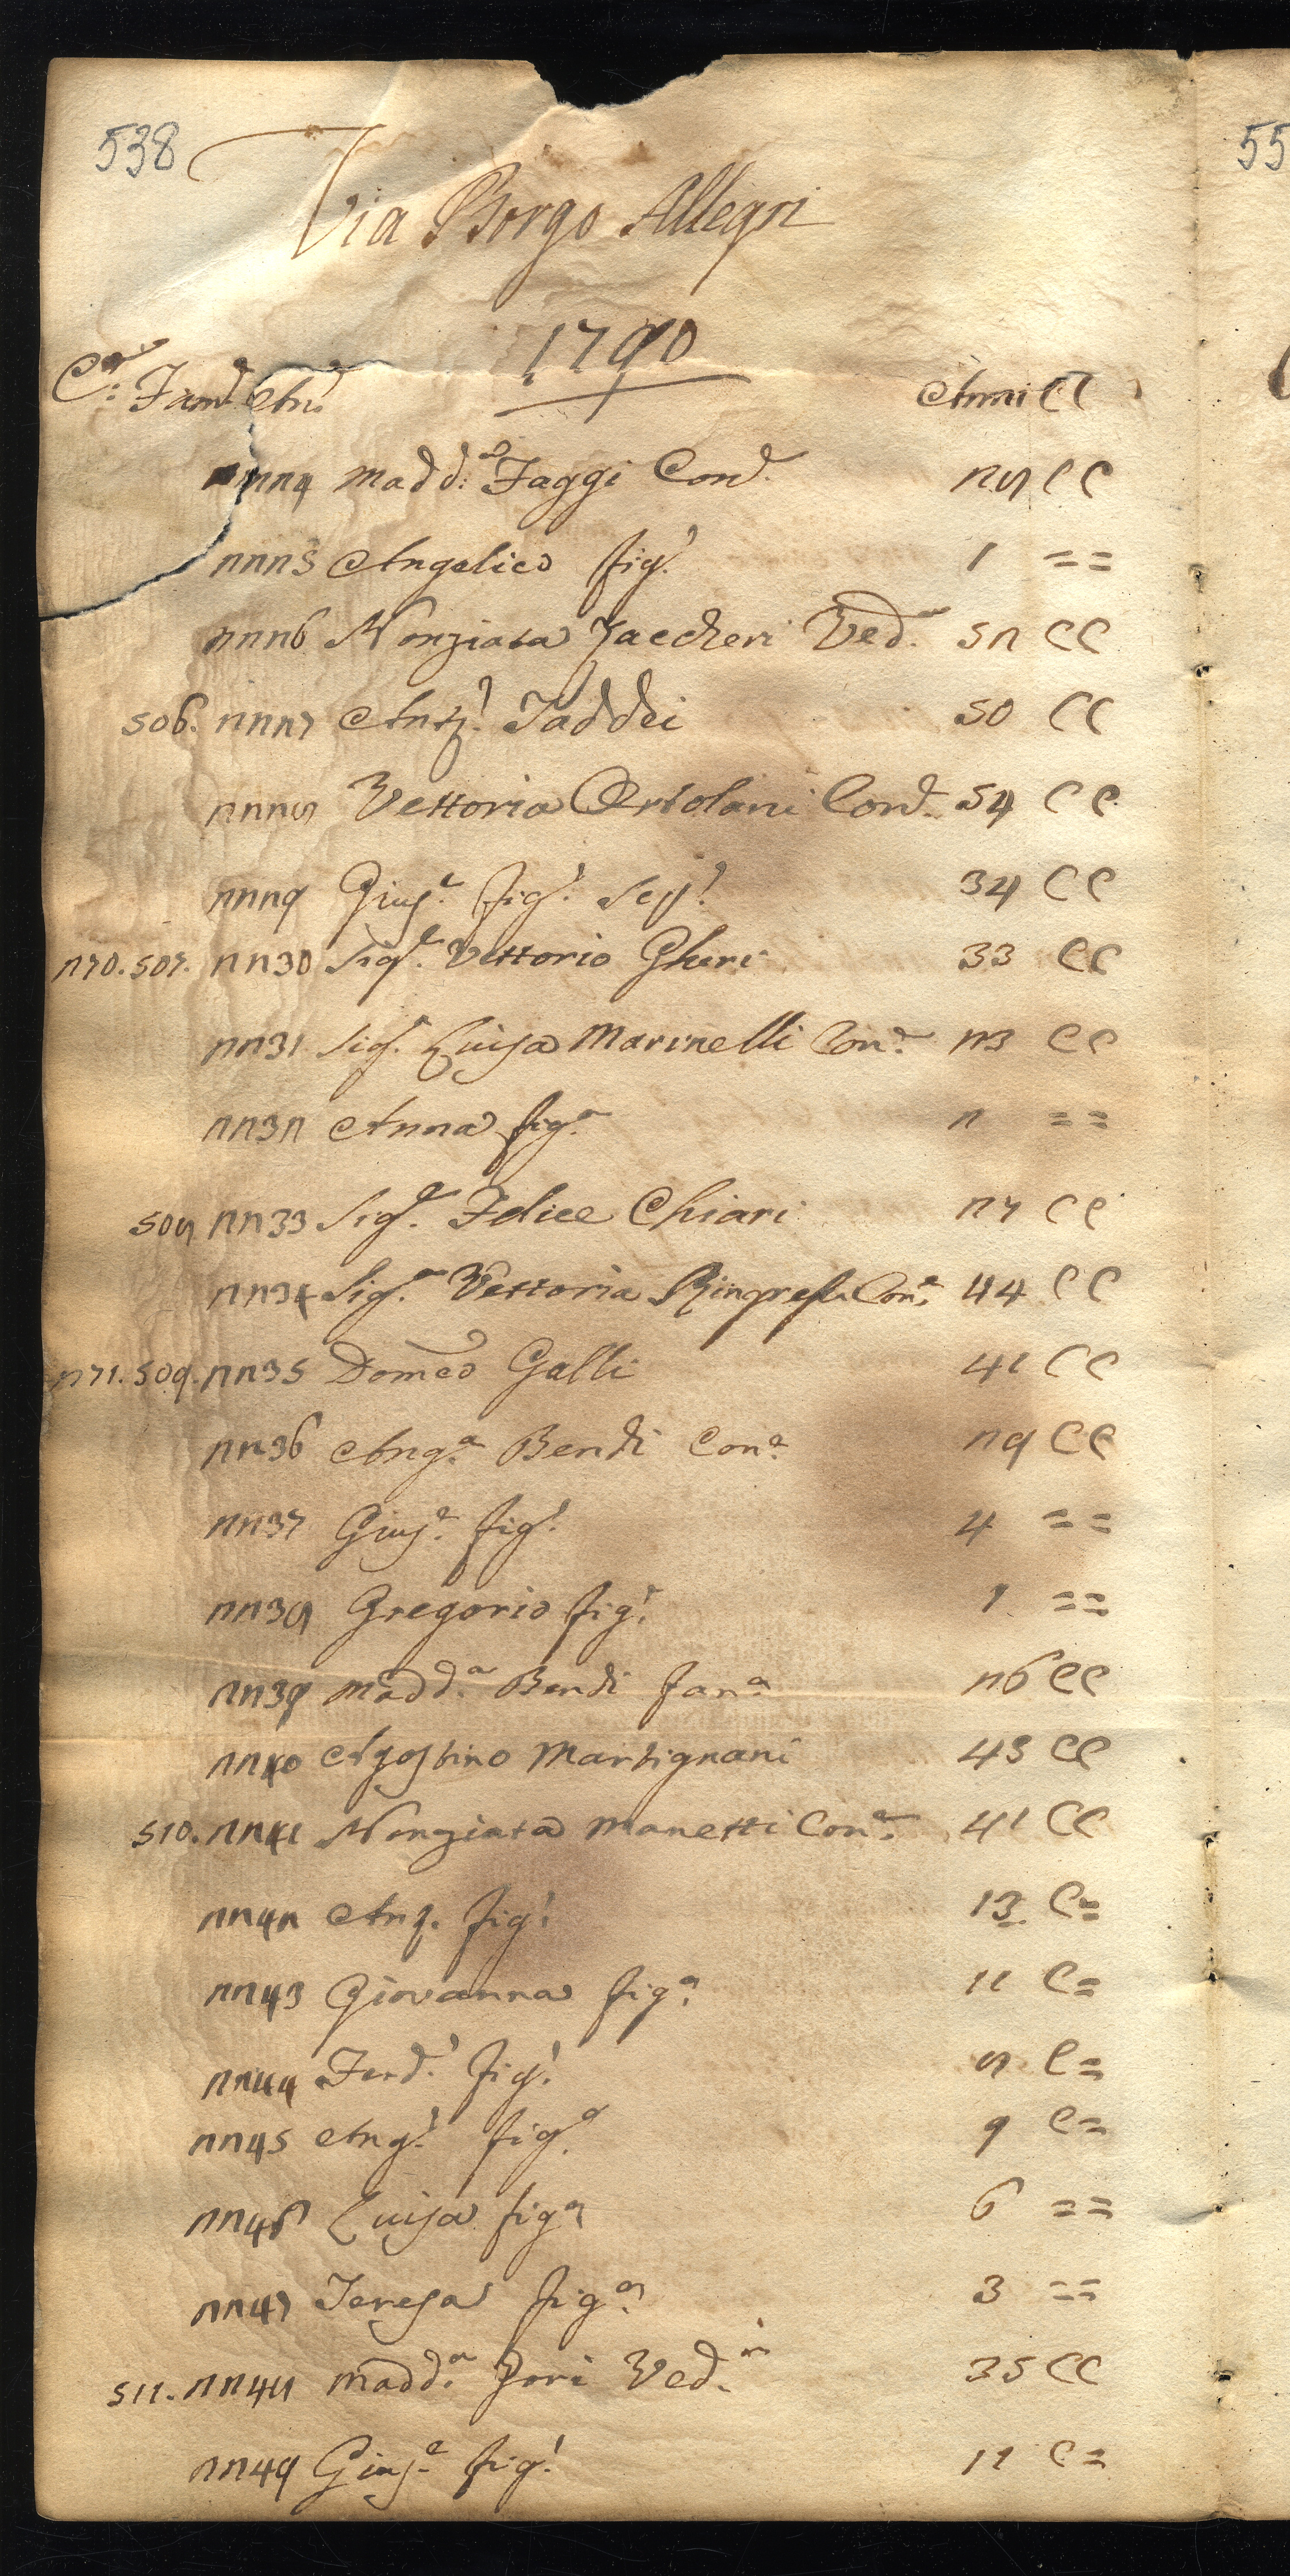 538
55
Via Borgo Allegri
1790
Cᵉ: Famᵉ Anᵉ Anni CC
2224 Maddᵃ: Faggi Conᵉ. 28 CC
2225 Angelico figˡ. 1 ==
2226 Nonziata Zaccheri Vedᵃ. 52 CC
506. 2227 Antᵒ. Taddei 50 CC
2228 Vettoria Ortolani Conᵉ. 54 CC
2229 Giusᵉ. figˡ. 34 CC
270. 507. 2230 Sigʳ. Vettorio Gheri 33 CC
2231 Sigᵃ. Luisa Marinelli Conᵉ. 23 CC
2232 Anna figᵃ. 2 ==
508 2233 Sigʳ. Felice Chiari 27 CC
2234 Sigᵃ. Vettoria Conᵉ. 44 CC
271. 509. 2235 Domco Galli 41 CC
2236 Angᵃ. Bendi Conᵉ. 29 CC
2237 Giusᵉ. figˡ. 4 ==
2238 Gregorio figˡ. 1 ==
2239 Maddᵃ. Bendi fanᵃ. 26 CC
2240 Agostino Martignani 43 CC
510. 2241 Nonziata Manetti Conᵉ. 41 CC
2242 figˡ. 13 C=
2243 Giovanna figᵃ. 11 C=
2244 Ferdᵒ. figˡ. 8 C=
2245 Angˡ. figᵃ. 9 C=
2246 Luisa figᵃ. 6 ==
2247 Teresa figᵃ. 3 ==
511. 2248 Maddᵃ. Zori Vedᵃ. 35 CC
2249 Giusᵉ. figˡ. 11 C=